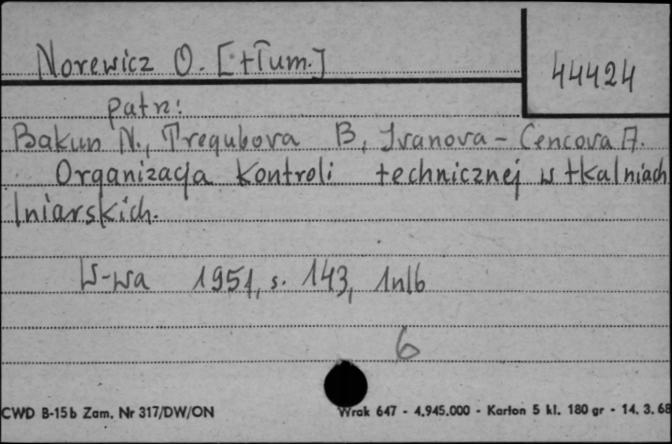 Norewicz O. [tłum.]
44424
patrz:
Bakun N., Tregubova B, Ivanova-Cencova A.
Organizacja kontroli technicznej w tkalniach
lniarskich.
W-wa 1951, s. 143, 1nlb
6
CWD B-15b Zam. Nr 317/DW/ON
Wrak 647 - 4.945.000 - Karton 5 kl. 180 gr - 14. 3. 68